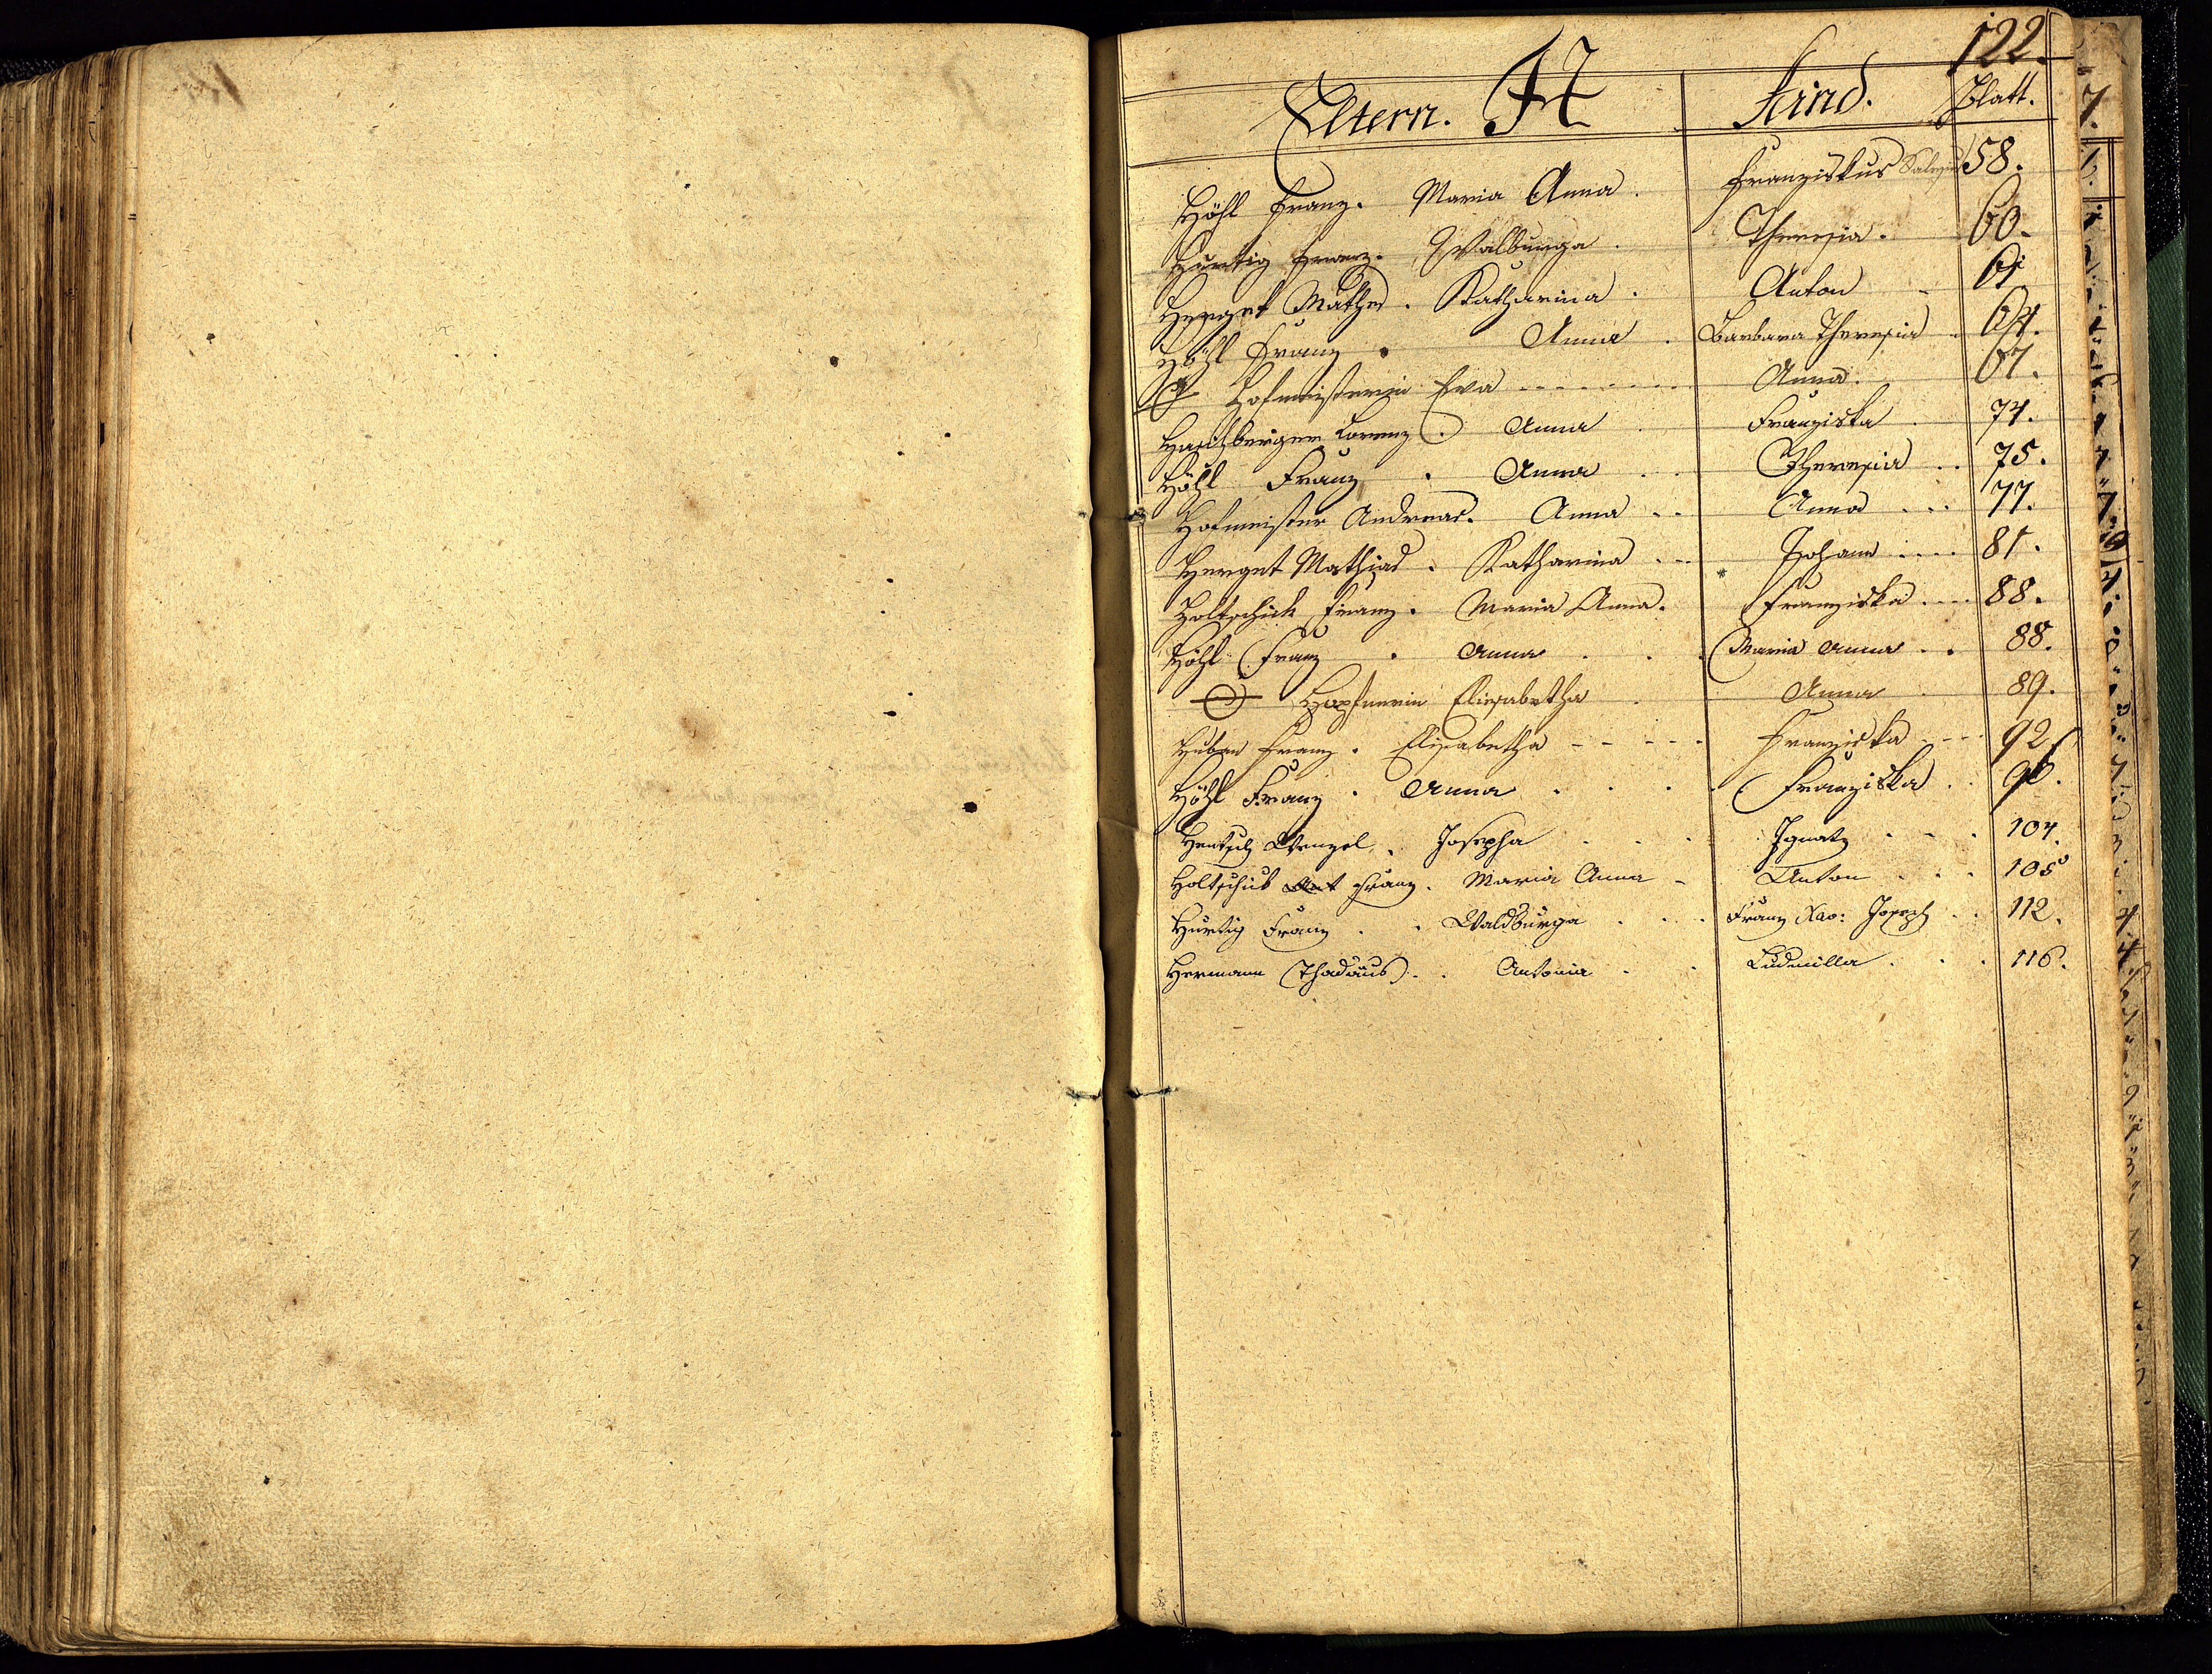 122.
Eltern. H Kind. Blatt.
Höhl Franz. Maria Anna. Franziskus 58.
Hurtig Franz. Walburga. Theresia. 60.
Herget Mathes. Katharina. Anton 61
Höhl Franz. Anna. Barbara Theresia. 64.
Hofmeisterin Eva Anna. 67.
Lorenz. Anna Franziska. 74.
Höhl Franz. Anna Theresia.. 75.
Hofmeister Andreas. Anna.. Anna... 77.
Herget Mathias. Katharina.. Johann.... 81.
Holtschick Franz. Maria Anna. Franziska... 88.
Höhl Franz. Anna... Maria Anna.. 88.
Hopfnerin Elisabetha. Anna. 89.
Huban Franz. Elisabetha - - - - - Franziska - - - 92.
Höhl Franz. Anna.... Franziska.. 96.
Hentsch Wenzel. Josepha... Ignatz... 104.
Holtschick Franz. Maria Anna - Anton... 105
Hurtig Franz.. Waldburga... Franz Xav: Joseph.. 112.
Hermann Thadäus.. Antonia.. Ludmilla... 116.